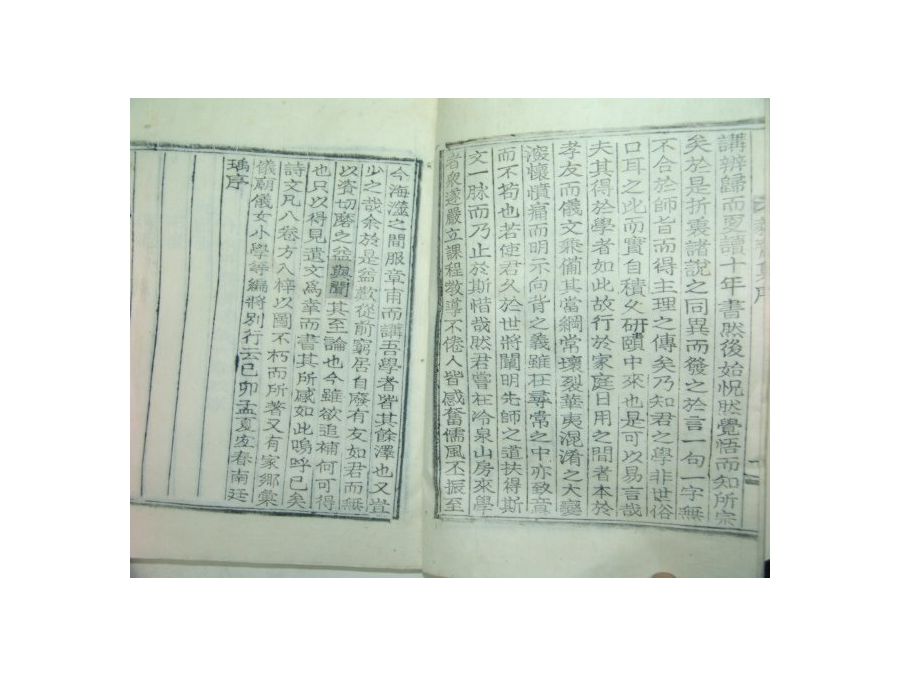 講辨歸而更讀十年書然後始怳然覺悟而知所宗
矣於是折衷諸說之同異而發之於言一句一字無
不合於師旨而得主理之傳矣乃知君之學非世俗
口耳之比而實自積久研賾中來也是可以易言哉
夫其得於學者如此故行於家庭日用之間者本於
孝友而儀文乘備其當綱常壞裂華夷混淆之大變
深懷憤痛而明示向背之義雖在尋常之中亦致意
而不苟也若使君久於世將闡明先師之道扶得斯
文一脉而乃止於斯惜哉然君嘗在冷泉山房來學
者衆遂嚴立課程敎導不倦人皆感奮儒風丕振至
今海滋之間服章甫而講吾學者皆其餘澤也又豈
少之哉余於是益歎從前窮居自廢有友如君而無
以資切磨之益與聞其至論也今雖欲追補何可得
也只以得見遺文爲幸而書其所感如此嗚呼已矣
詩文凡八卷方入梓以圖不朽而所著又有家鄕彙
儀廟儀女小學等編將別行云己卯孟夏宜春南廷
瑀序